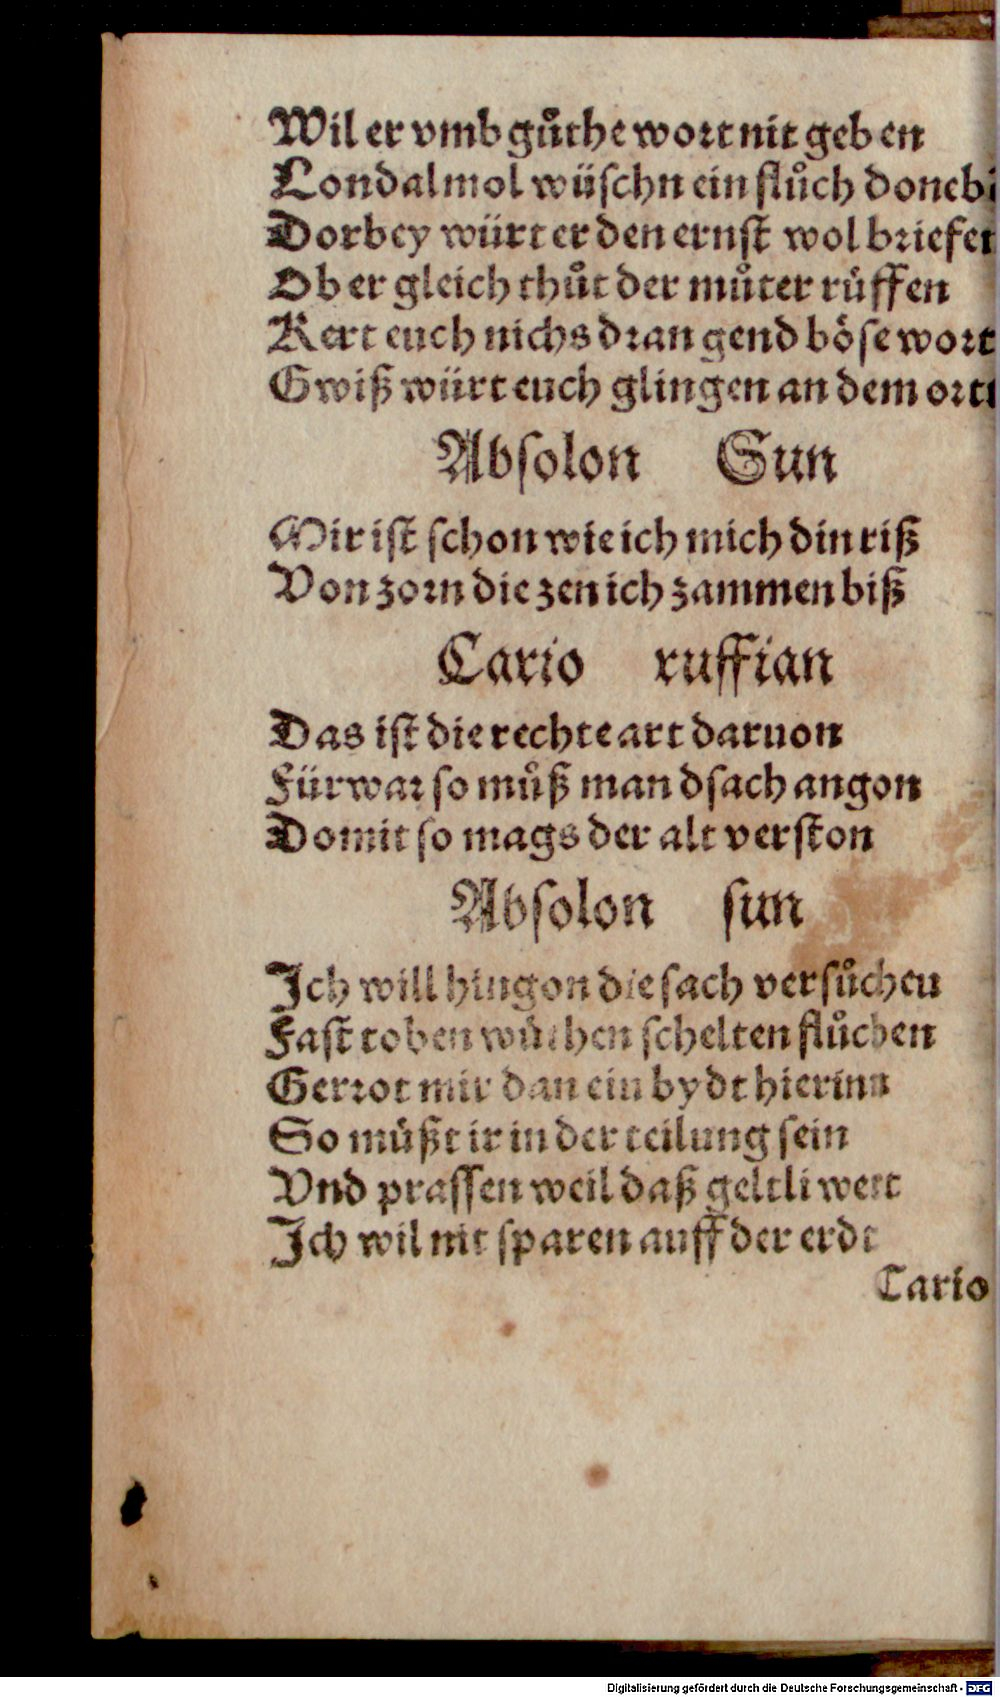 Wil er vmb gůthe wort nit geben
Londalmol wüschn ein flůch
Dorbey würt er den ernst wol
Ob er gleich thůt der můter rüffen
Kert euch nichs dran gend böse wort
Gwiß würt euch glingen an dem
Absolon Sun
Mir ist schon wie ich mich din riß
Von zorn die zen ich zammen biß
Cario ruffian
Das ist die rechte art daruon
Fürwar so můß man dsach angon
Domit so mags der alt verston
Absolon sun
Ich will hingon die sach versůchen
Fast toben wüthen schelten flůchen
Gerrot mir dan ein bydt hierinn
So müßt ir in der teilung sein
Vnd prassen weil daß geltli wert
Ich wil nit sparen auff der erdt
Cario
Digitalisierung gefördert durch die Deutsche Forschungsgemeinschaft - DFG